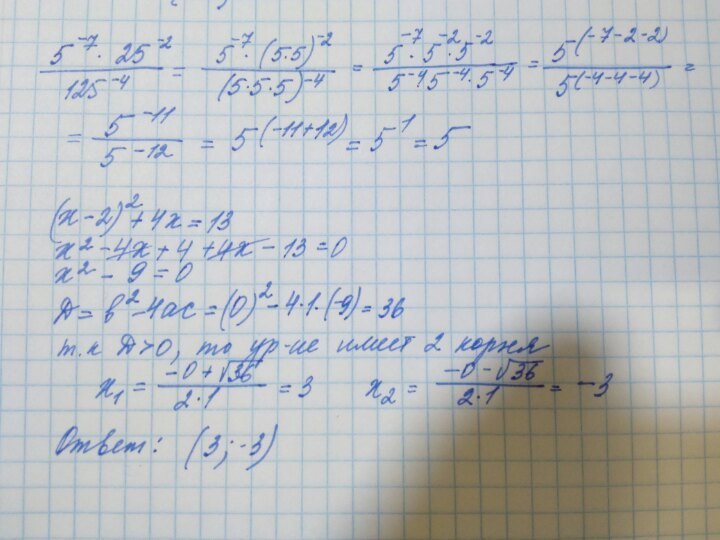 5⁻⁷ · 25⁻² / 125⁻⁴ = 5⁻⁷ · (5·5)⁻² / (5·5·5)⁻⁴ = 5⁻⁷ · 5⁻² · 5⁻² / 5⁻⁴ 5⁻⁴ · 5⁻⁴ = 5^(-7-2-2) / 5^(-4-4-4) =
= 5⁻¹¹ / 5⁻¹² = 5^(-11+12) = 5¹ = 5
(x-2)² + 4x = 13
x² - 4x + 4 + 4x - 13 = 0
x² - 9 = 0
Д = b² - 4ac = (0)² - 4·1·(-9) = 36
т.к Д>0, то ур-ие имеет 2 корня
x₁ = -0 + √36 / 2·1 = 3 x₂ = -0 - √36 / 2·1 = -3
Ответ: (3; -3)